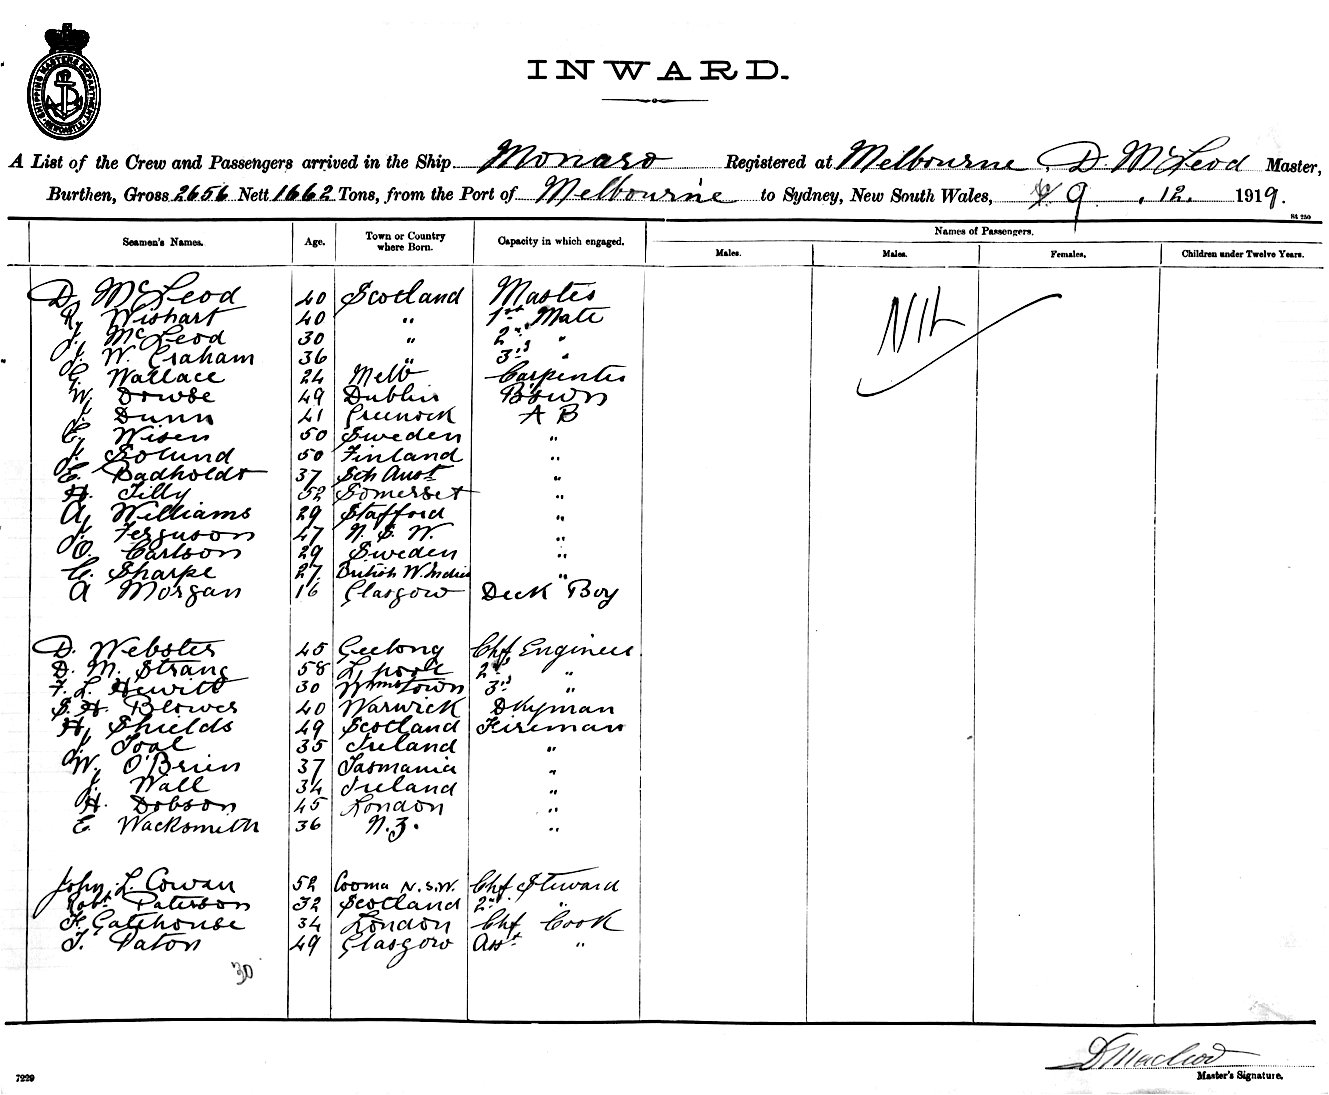 SHIPPING MASTERS DEPARTMENT NEWCASTLE
INWARD.
A List of the Crew and Passengers arrived in the Ship Monaro Registered at Melbourne, D. McLeod Master,
Burthen, Gross 2656 Nett 1662 Tons, from the Port of Melbourne to Sydney, New South Wales, 9 . 12. 1919.
Seamen's Names. Age. Town or Country where Born. Capacity in which engaged. Names of Passengers.
Males. Males. Females. Children under Twelve Years.
D. McLeod 40 Scotland Master Nil
R. Wishart 40 " 1st Mate
J. McLeod 30 " 2nd "
J. W. Graham 36 " 3rd "
G. Wallace 24 Melb Carpenter
W. Dowse 49 Dublin Bosun
J. Dunn 41 Greenock A B
C. Wisen 50 Sweden "
J. Solund 50 Finland "
E. Badholdt 37 Sth Aust "
H. Tilly 52 Somerset "
A. Williams 29 Stafford "
J. Ferguson 47 N. S. W. "
O. Carlson 29 Sweden "
C. Sharpe 27 British W. Indies "
A Morgan 16 Glasgow Deck Boy
D. Webster 45 Geelong Chf Engineer
D. M. Strang 58 L'pool 2nd "
F. L. Hewitt 30 Wmstown 3rd "
S. H. Blower 40 Warwick Dkyman
H. Shields 49 Scotland Fireman
J. Toal 35 Ireland "
W. O'Brien 37 Tasmania "
J. Wall 34 Ireland "
H. Dobson 45 London "
E. Wacksmith 36 N.Z. "
John L. Cowan 52 Cooma N.S.W. Chf Steward
Robt. Paterson 32 Scotland 2nd "
F. Gatehouse 34 London Chf Cook
T. Paton 49 Glasgow Asst "
30
D Macleod
Master's Signature.
7229